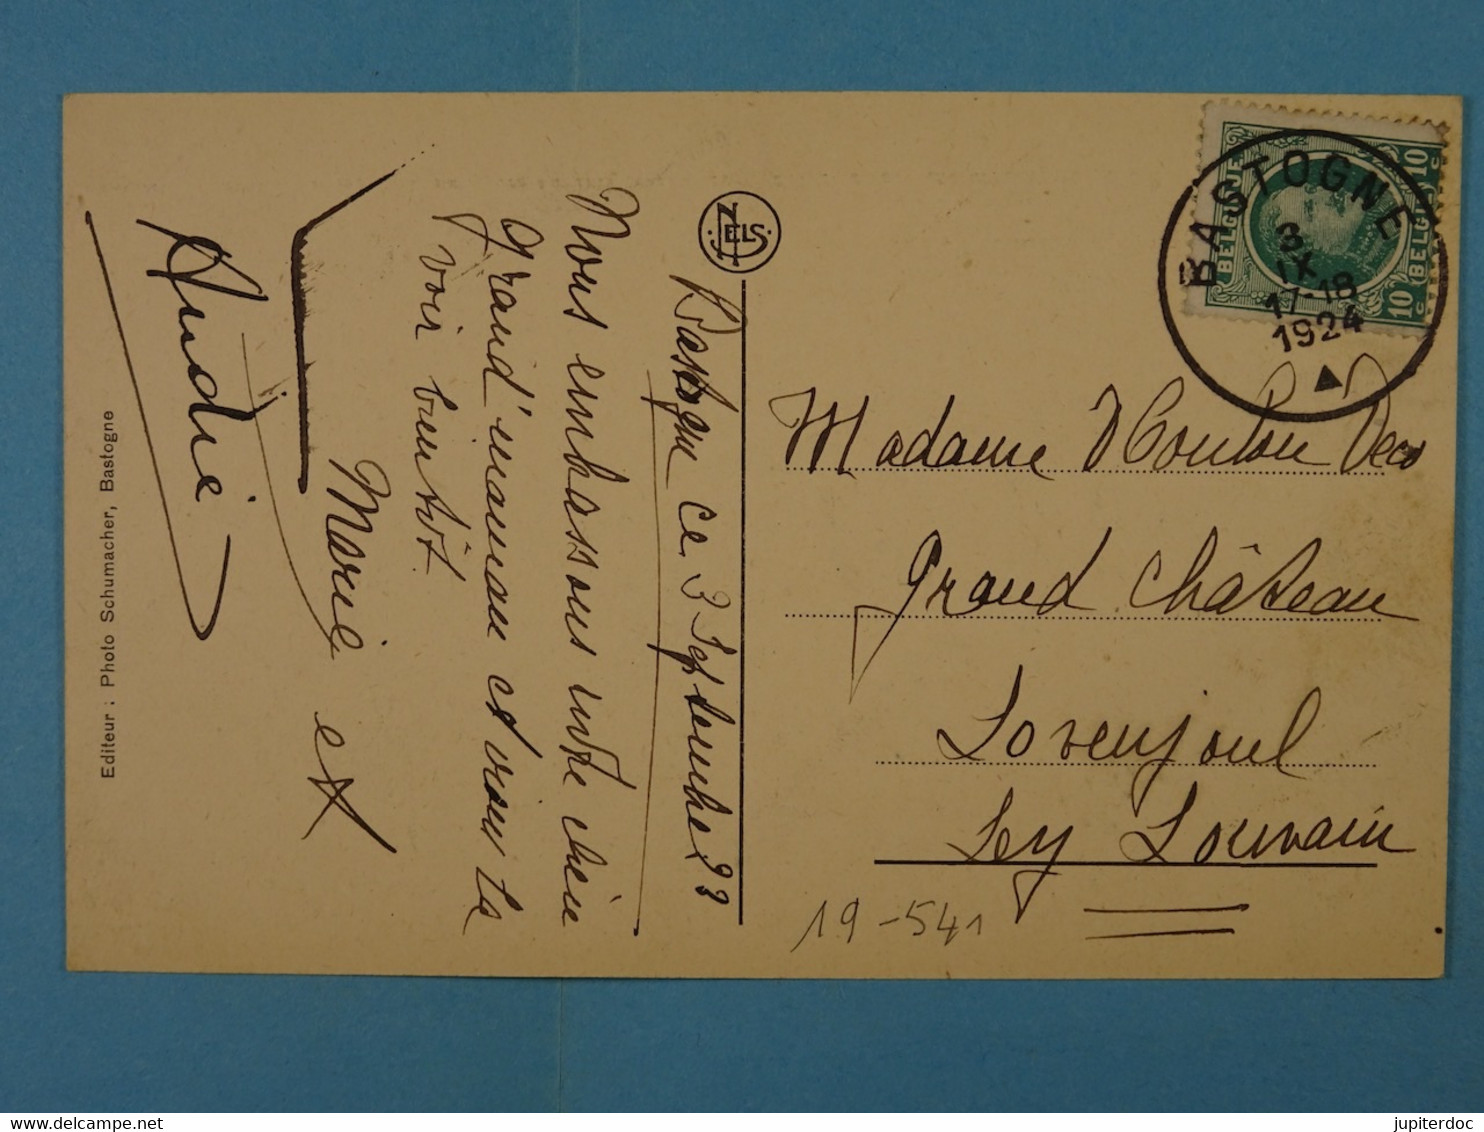 BASTOGNE
3
IX
17-18
1924
BELGIQUE
10 c
BELGIË
10 c
NELS
Bastogne ce 3 Septembre 23
Nous embrassons notre chère
grand'maman et vous la
voir bientôt.
Marie et
André
Madame
Grand Château
Lovenjoul
Ley Louvain
19-541
Editeur : Photo Schumacher, Bastogne
jupiterdoc